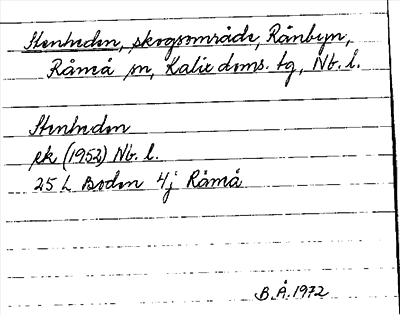 Stenheden, skogsområde, Rånbyn,
Råneå sn, Kalix doms. tg, Nb. l.
Stenheden
ek (1952) Nb. l.
25 L Boden 4j Råneå
B.Å. 1972